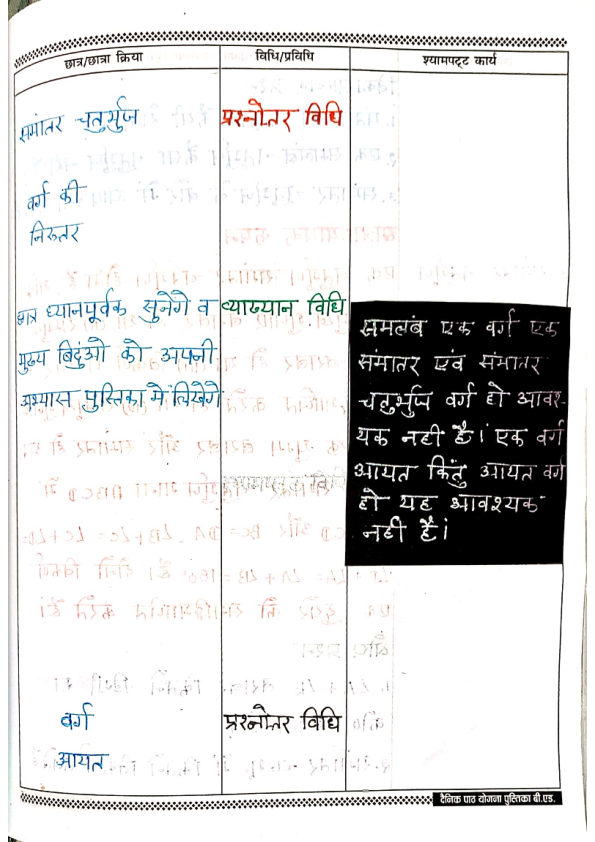 छात्र/छात्रा क्रिया
विधि/प्रविधि
श्यामपट्ट कार्य
समांतर चतुर्भुज
प्रश्नोतर विधि
वर्ग की
निरुतर
छात्र ध्यानपूर्वक सुनेगे व
मुख्य बिदुंओ को अपनी
अभ्यास पुस्तिका में लिखेगे
व्याख्यान विधि
समलंब एक वर्ग एक
संमातर एवं संमातर
चतुर्भुज वर्ग हो आवश-
यक नही है। एक वर्ग
आयत किंतु आयत वर्ग
हो यह आवश्यक
नही है।
वर्ग
आयत
प्रश्नोतर विधि
दैनिक पाठ योगना पुस्तिका बी.एड.